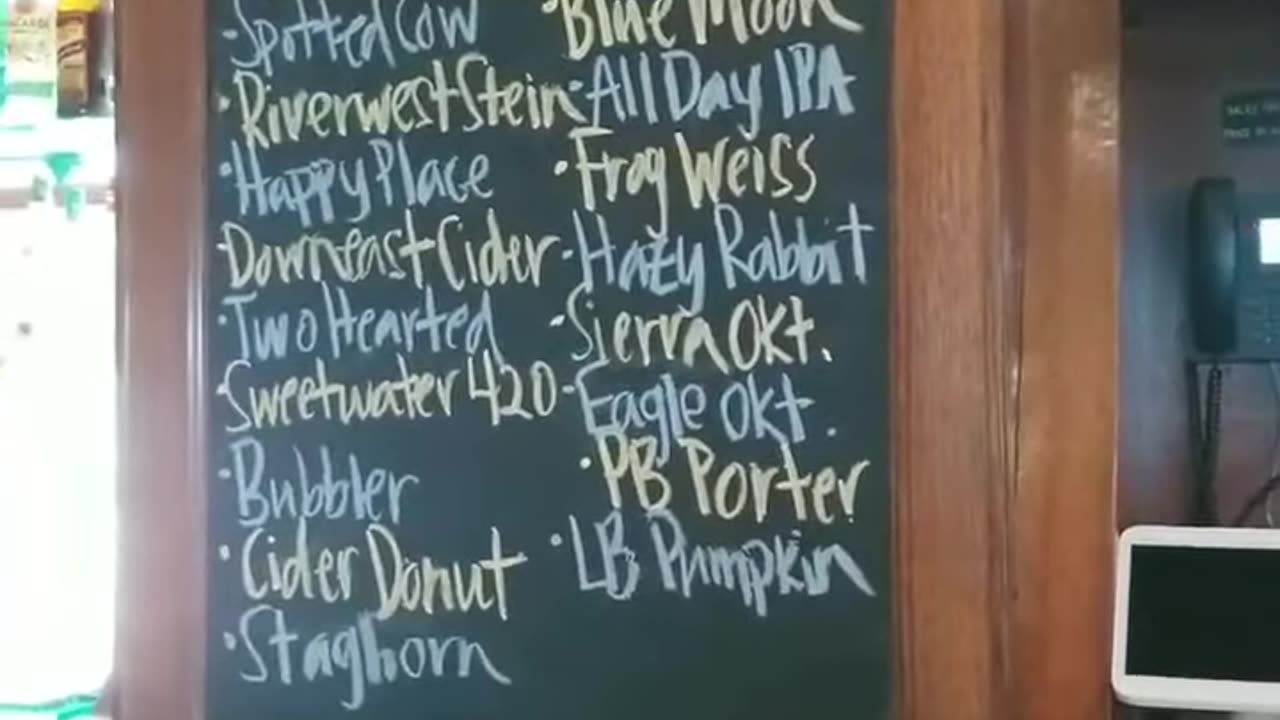 ·Spotted Cow
·Riverwest Stein
·Happy Place
·Downeast Cider
·Two Hearted
·Sweetwater 420
·Bubbler
·Cider Donut
·Staghorn
·Blue Moon
·All Day IPA
·Frog Weiss
·Hazy Rabbit
·Sierra Okt.
·Eagle Okt.
·PB Porter
·LB Pumpkin